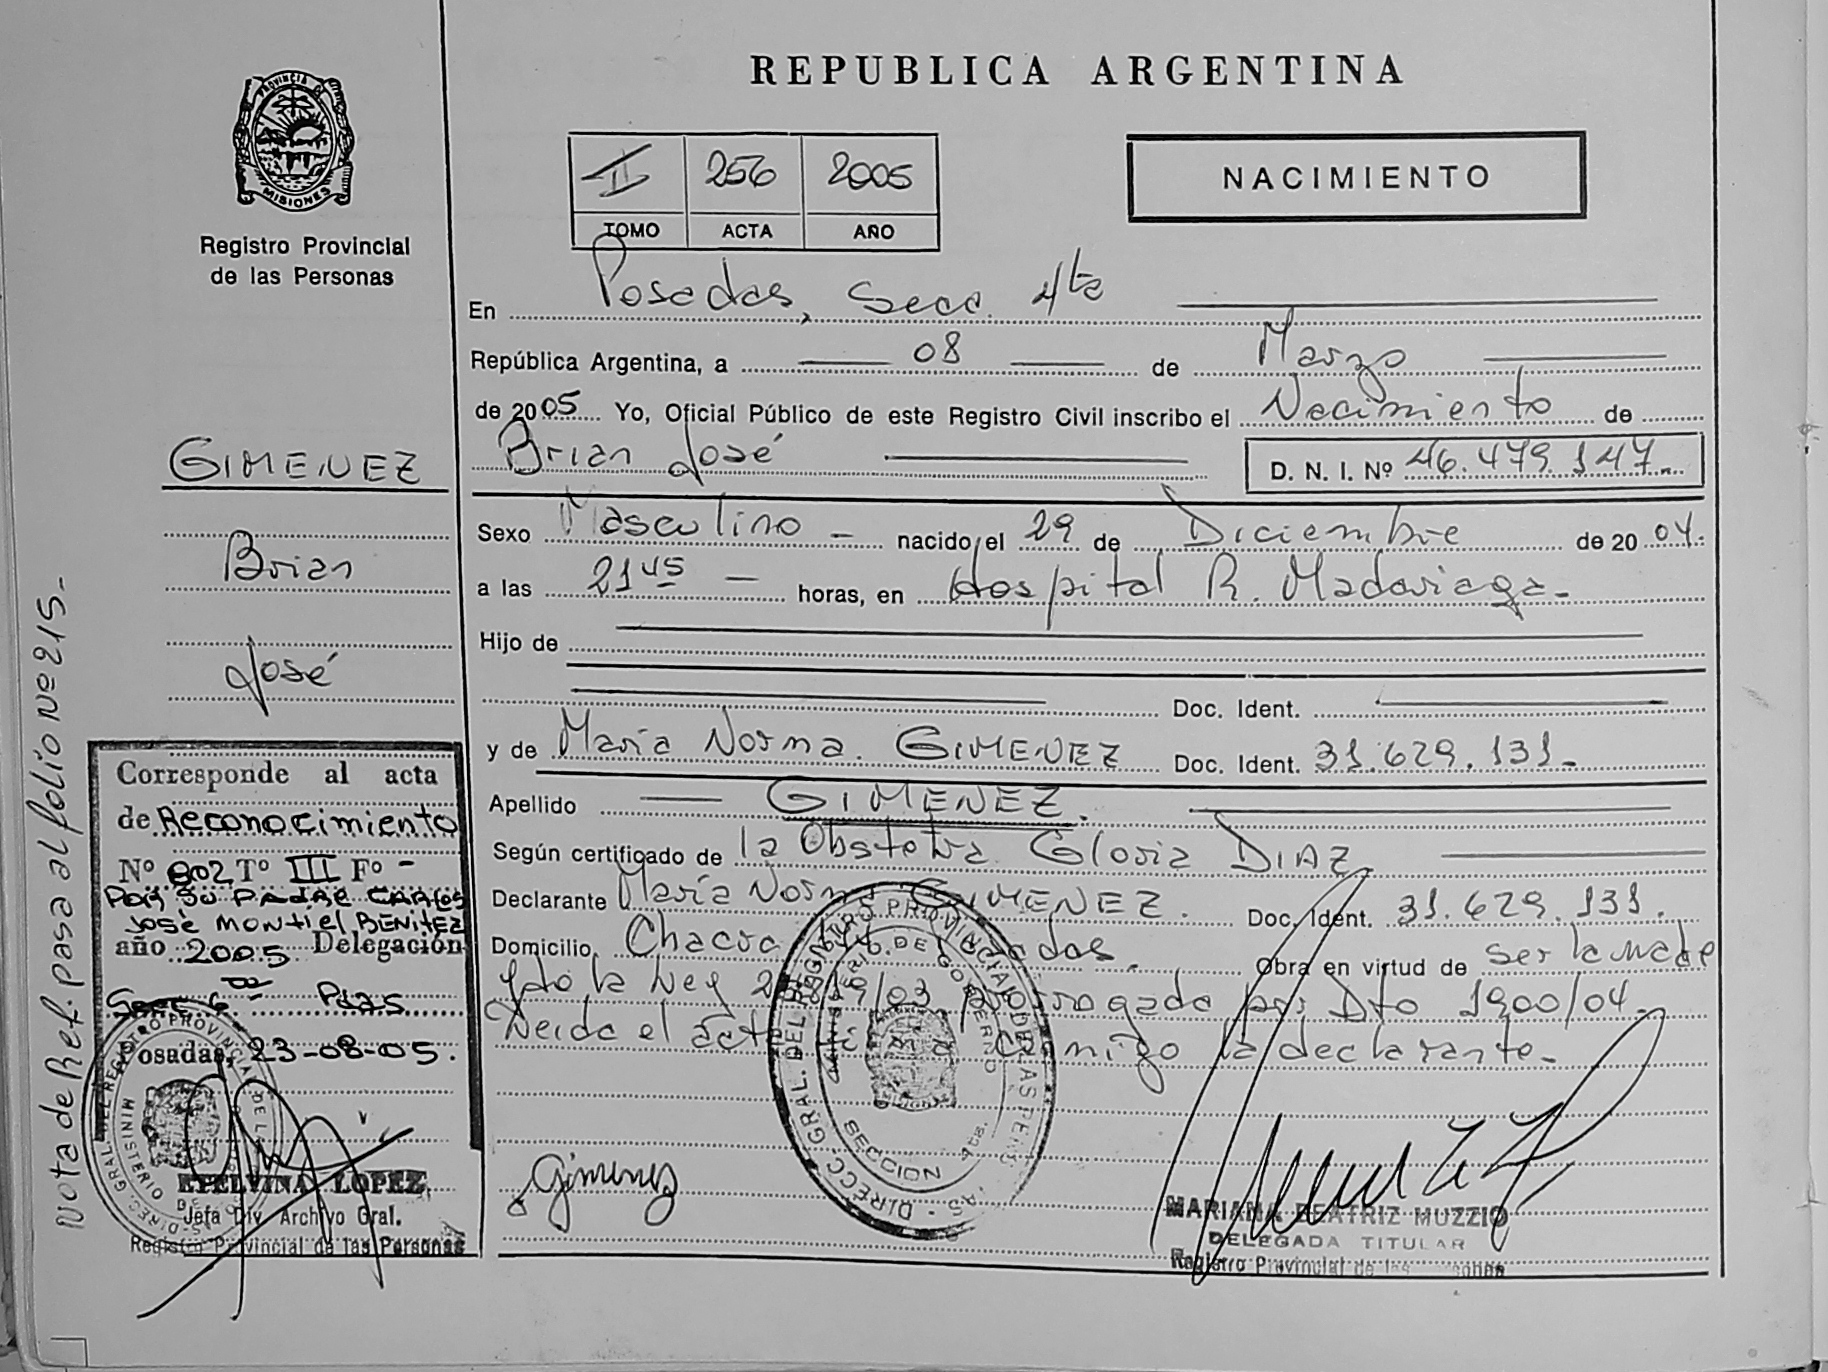 REPUBLICA ARGENTINA
PROVINCIA DE
MISIONES
Registro Provincial
de las Personas
II 256 2005
TOMO ACTA AÑO
NACIMIENTO
En Posadas, Secc. 4ta
República Argentina, a 08 de Marzo
de 2005 Yo, Oficial Público de este Registro Civil inscribo el Nacimiento de
Brian José D. N. I. Nº 46.479.147
Sexo Masculino - nacido el 29 de Diciembre de 2004.
a las 21 45 - horas, en Hospital R. Madariaga-
Hijo de
Doc. Ident.
y de María Norma. GIMENEZ Doc. Ident. 31.629.131-
Apellido GIMENEZ.
Según certificado de la Obstetra Gloria DIAZ
Declarante María Norma GIMENEZ. Doc. Ident. 31.629.131.
Domicilio Chacra Posadas. Obra en virtud de ser la madre
y to la Ley /03 Prorrogada por Dto 1900/04.
Leida el acta conmigo la declarante-
Gimenez
DIRECC. GRAL. DEL REGISTRO PROVINCIAL DE LAS PERSONAS
MINISTERIO DE GOBIERNO
SECCION 4ta.
MARIANA BEATRIZ MUZZIO
DELEGADA TITULAR
Registro Provincial de las Personas
GIMENEZ
Brian
José
Corresponde al acta
de Reconocimiento
Nº 802 Tº III Fº -
POR SU PADRE CARLOS
JOSÉ MONTIEL BENITEZ
año 2005 Delegación
Secc 6ta Pdas
Posadas, 23-08-05.
DIRECC. GRAL. DEL REGISTRO PROVINCIAL DE LAS
MINISTERIO
ETELVINA LOPEZ
Jefa Div. Archivo Gral.
Registro Provincial de las Personas
Nota de Ref. pasa al folio Nº 215-